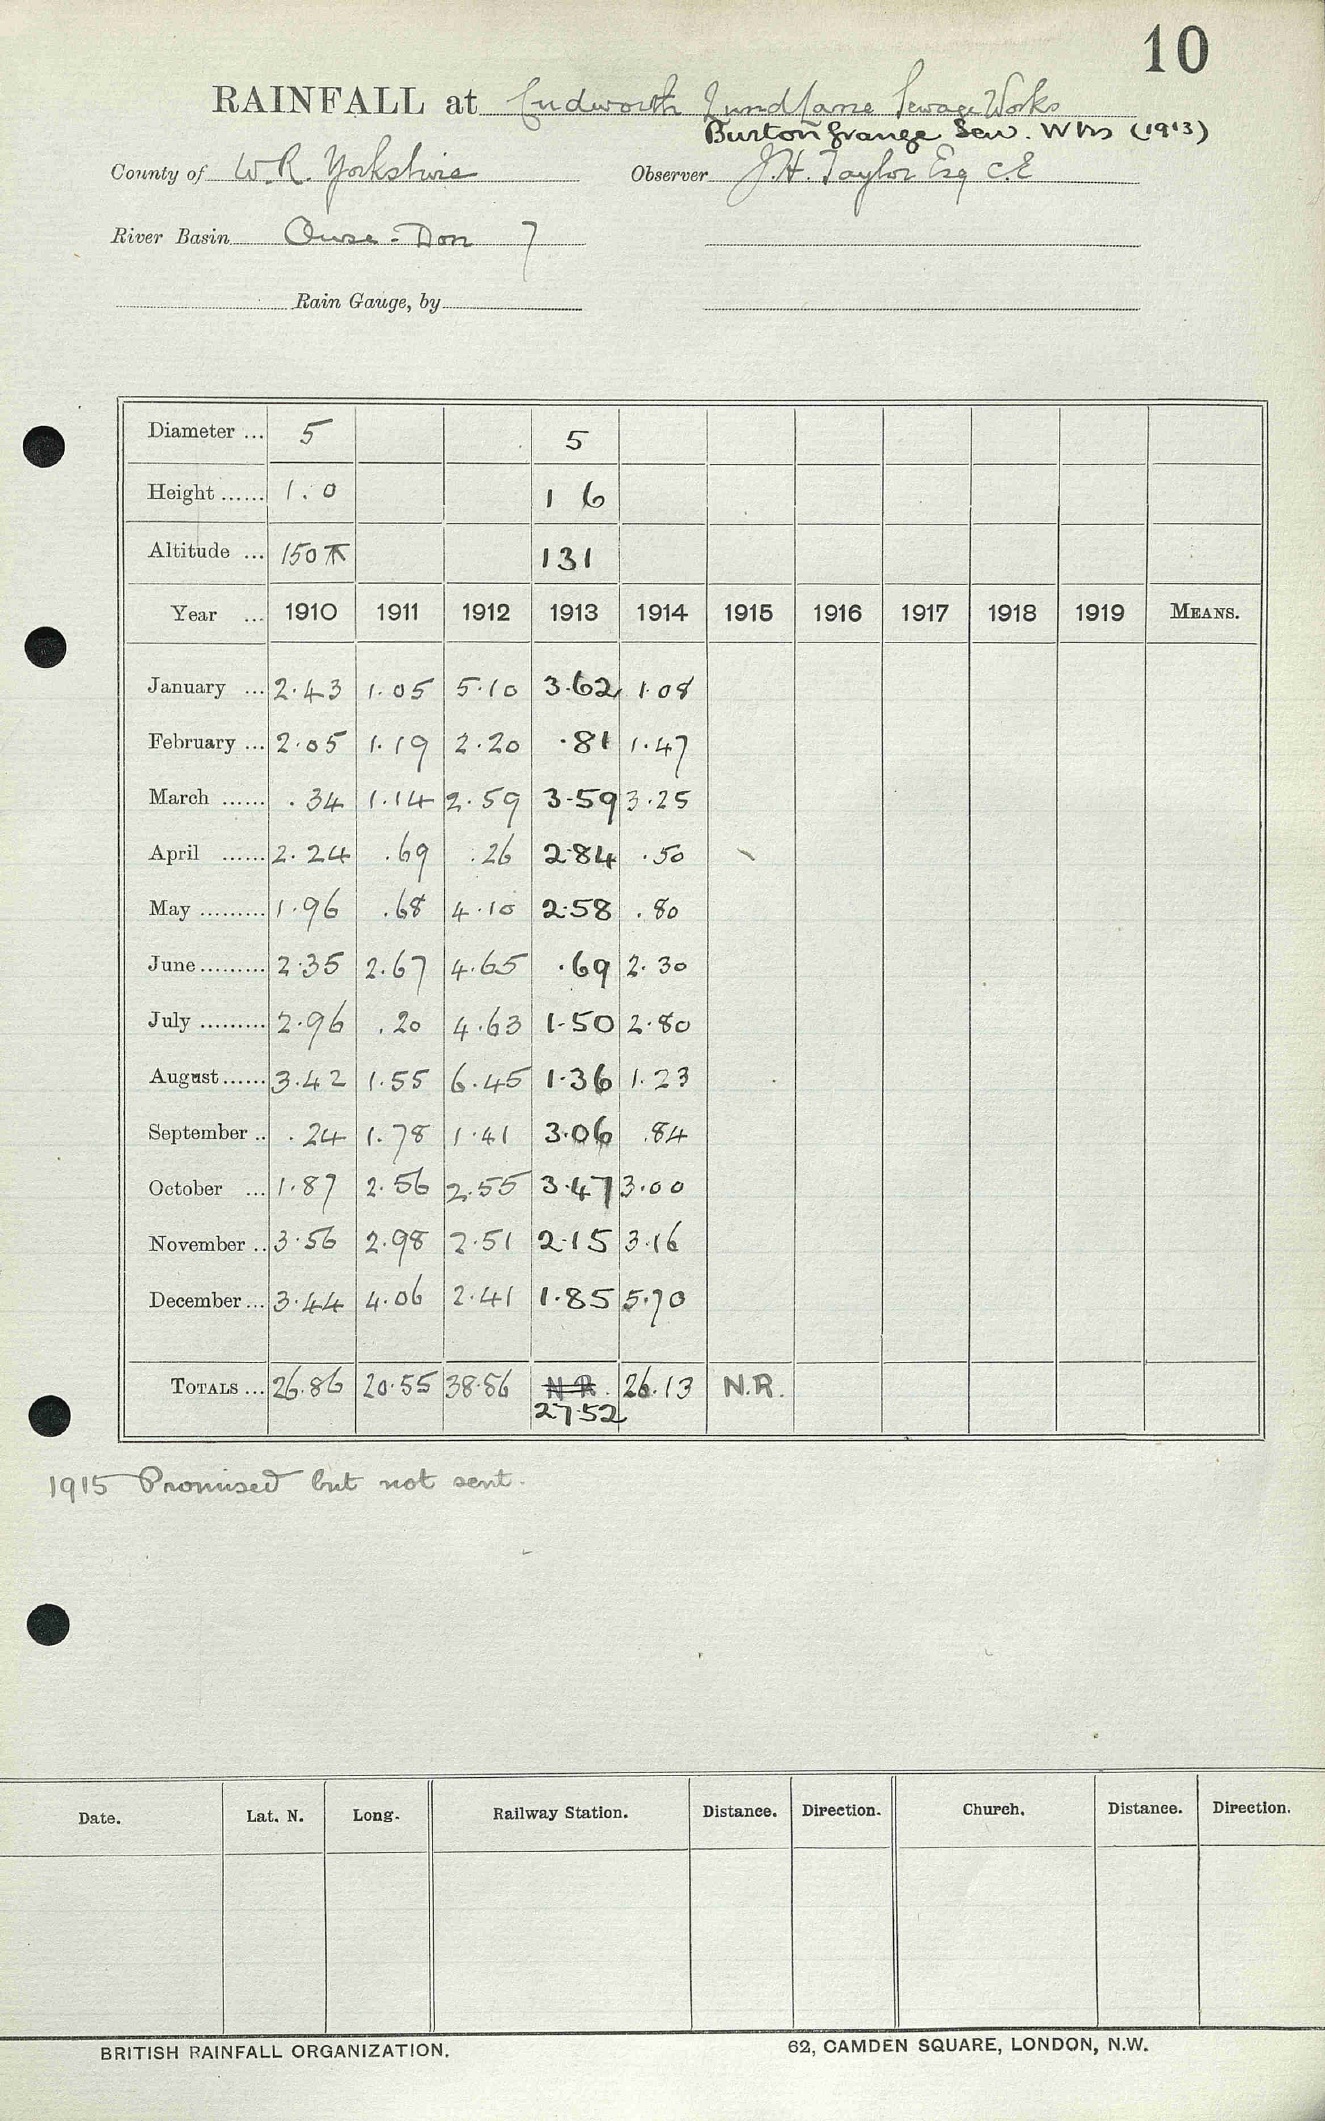 10
RAINFALL at Cudworth Lund Lane Sewage Works
Burton Grange Sew. Wks (1913)
County of W.R. Yorkshire Observer J.H. Taylor Esq C.E
River Basin Ouse-Don 7
Rain Gauge, by
Diameter ... 5 5
Height ...... 1.0 1 6
Altitude ... 150 131
Year ... 1910 1911 1912 1913 1914 1915 1916 1917 1918 1919 MEANS.
January ... 2.43 1.05 5.10 3.62 1.08
February ... 2.05 1.19 2.20 .81 1.47
March ...... .34 1.14 2.59 3.59 3.25
April ...... 2.24 .69 .26 2.84 .50
May ......... 1.96 .68 4.10 2.58 .80
June ......... 2.35 2.67 4.65 .69 2.30
July ......... 2.96 .20 4.63 1.50 2.80
August ...... 3.42 1.55 6.45 1.36 1.23
September .. .24 1.78 1.41 3.06 .84
October ... 1.87 2.56 2.55 3.47 3.00
November .. 3.56 2.98 2.51 2.15 3.16
December ... 3.44 4.06 2.41 1.85 5.70
TOTALS ... 26.86 20.55 38.86 N.R. 26.13 N.R.
27.52
1915 Promised but not sent.
Date. Lat. N. Long. Railway Station. Distance. Direction. Church. Distance. Direction.
BRITISH RAINFALL ORGANIZATION. 62, CAMDEN SQUARE, LONDON, N.W.